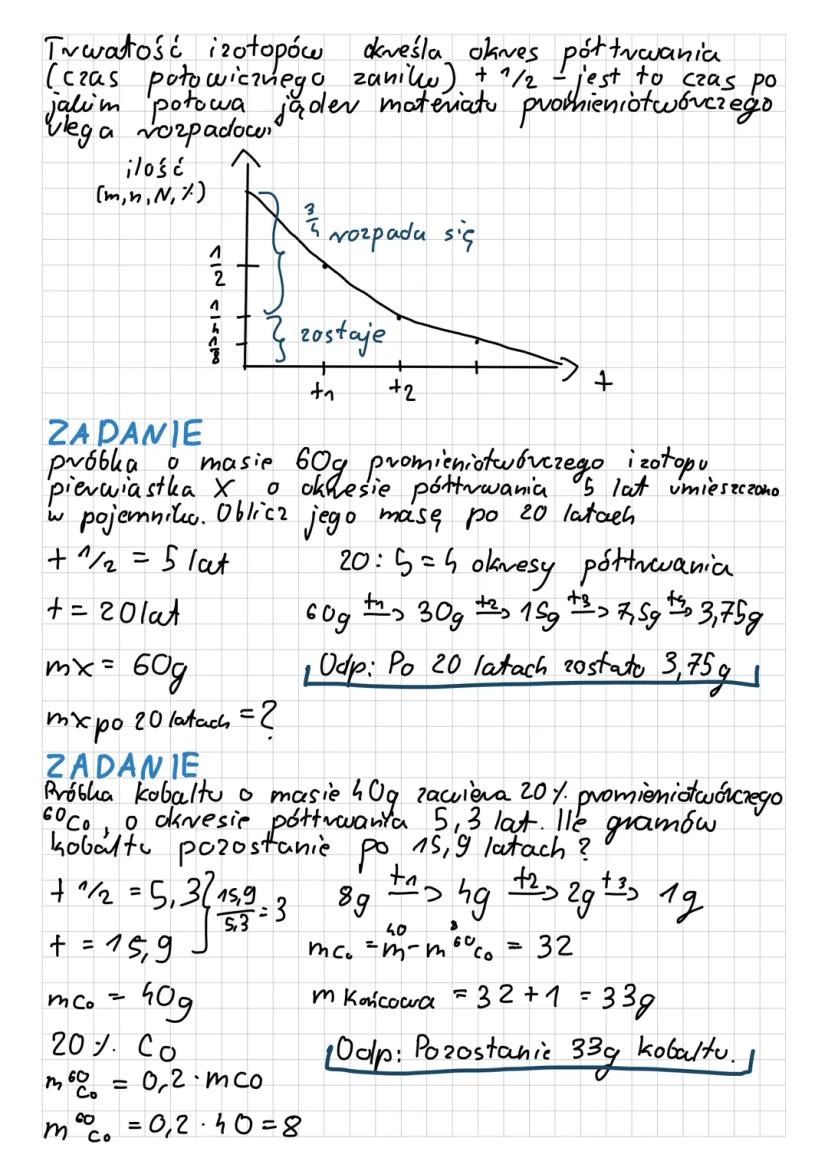 Trwałość izotopów określa okres półtrwania
(czas połowicznego zaniku) t 1/2 - jest to czas po
jakim połowa jąder materiału promieniotwórczego
ulega rozpadowi
ilość
(m,n,N,%)
3/4 rozpadu się
1/2
1/4
zostaje
1/8
t1
t2
t
ZADANIE
próbka o masie 60g promieniotwórczego izotopu
pierwiastka X o okresie półtrwania 5 lat umieszczono
w pojemniku. Oblicz jego masę po 20 latach
t 1/2 = 5 lat
20 : 5 = 4 okresy półtrwania
t = 20 lat
60g t1→ 30g t2→ 15g t3→ 7,5g t4→ 3,75g
mx = 60g
Odp: Po 20 latach zostało 3,75g
mx po 20 latach = ?
ZADANIE
Próbka kobaltu o masie 40g zawiera 20% promieniotwórczego
⁶⁰Co, o okresie półtrwania 5,3 lat. Ile gramów
kobaltu pozostanie po 15,9 latach?
t 1/2 = 5,3
15,9/5,3 = 3
8g t1→ 4g t2→ 2g t3→ 1g
t = 15,9
40 8
mCo = m - m ⁶⁰Co = 32
mCo = 40g
m końcowa = 32 + 1 = 33g
20% Co
Odp: Pozostanie 33g kobaltu.
m ⁶⁰Co = 0,2 · mCo
m ⁶⁰Co = 0,2 · 40 = 8